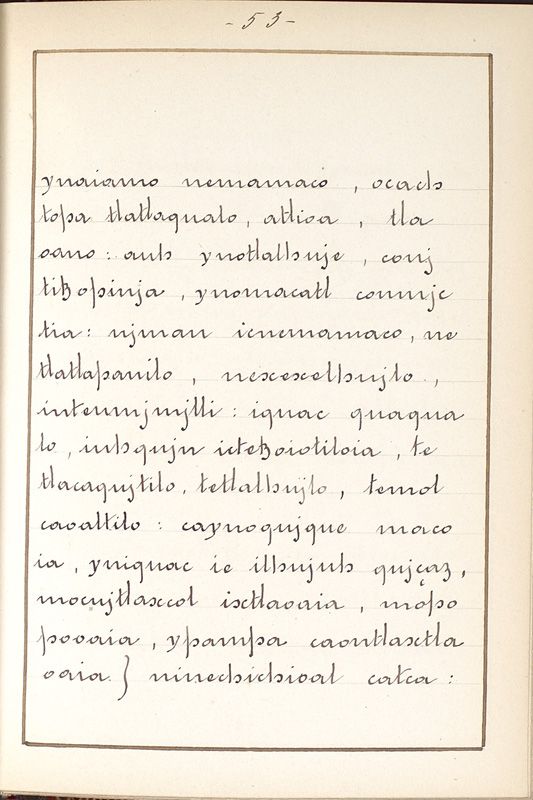 - 53 -
ynaiamo nemamaco, ocach
topa tlatlaqualo, atlioa, tla
oano: auh ynotlalhuje, conj
tiҍopinja, ynomacatl conmjc
tia: njman icnemamaco, ne
tlatlapanilo, nexexelhujlo,
inteumjmjlli: iquac quaqua
lo, iuhqujn icteҍoiotiloia, te
tlacaqujtilo, tetlalhujlo, temol
caoaltilo: caynoqujque maco
ia, yniquac ie ilhujuh qujçaz,
mocujtlaxcol ixtlaoaia, mopo
pooaia, ypampa caontlaxtla
oaia.} ninechichioal catca: